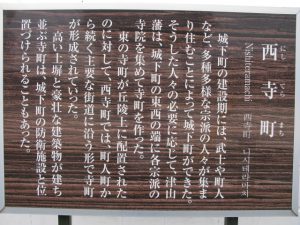 西寺町
にし てら まち
Nishiteramachi
西寺町 니시테라마치
城下町の建設期には、武士や町人
など、多種多様な宗派の人々が集ま
り住むことによって城下町ができた。
そうした人々の必要に応じて、津山
藩は、城下町の東西の端に各宗派の
寺院を集めて寺町を作った。
東の寺町が丘陵上に配置された
のに対して、西寺町では、町人町か
ら続く主要な街道に沿う形で寺町
が形成されていった。
高い土塀と豪壮な建築物が建ち
並ぶ寺町は、城下町の防衛施設と位
置づけられることもあった。